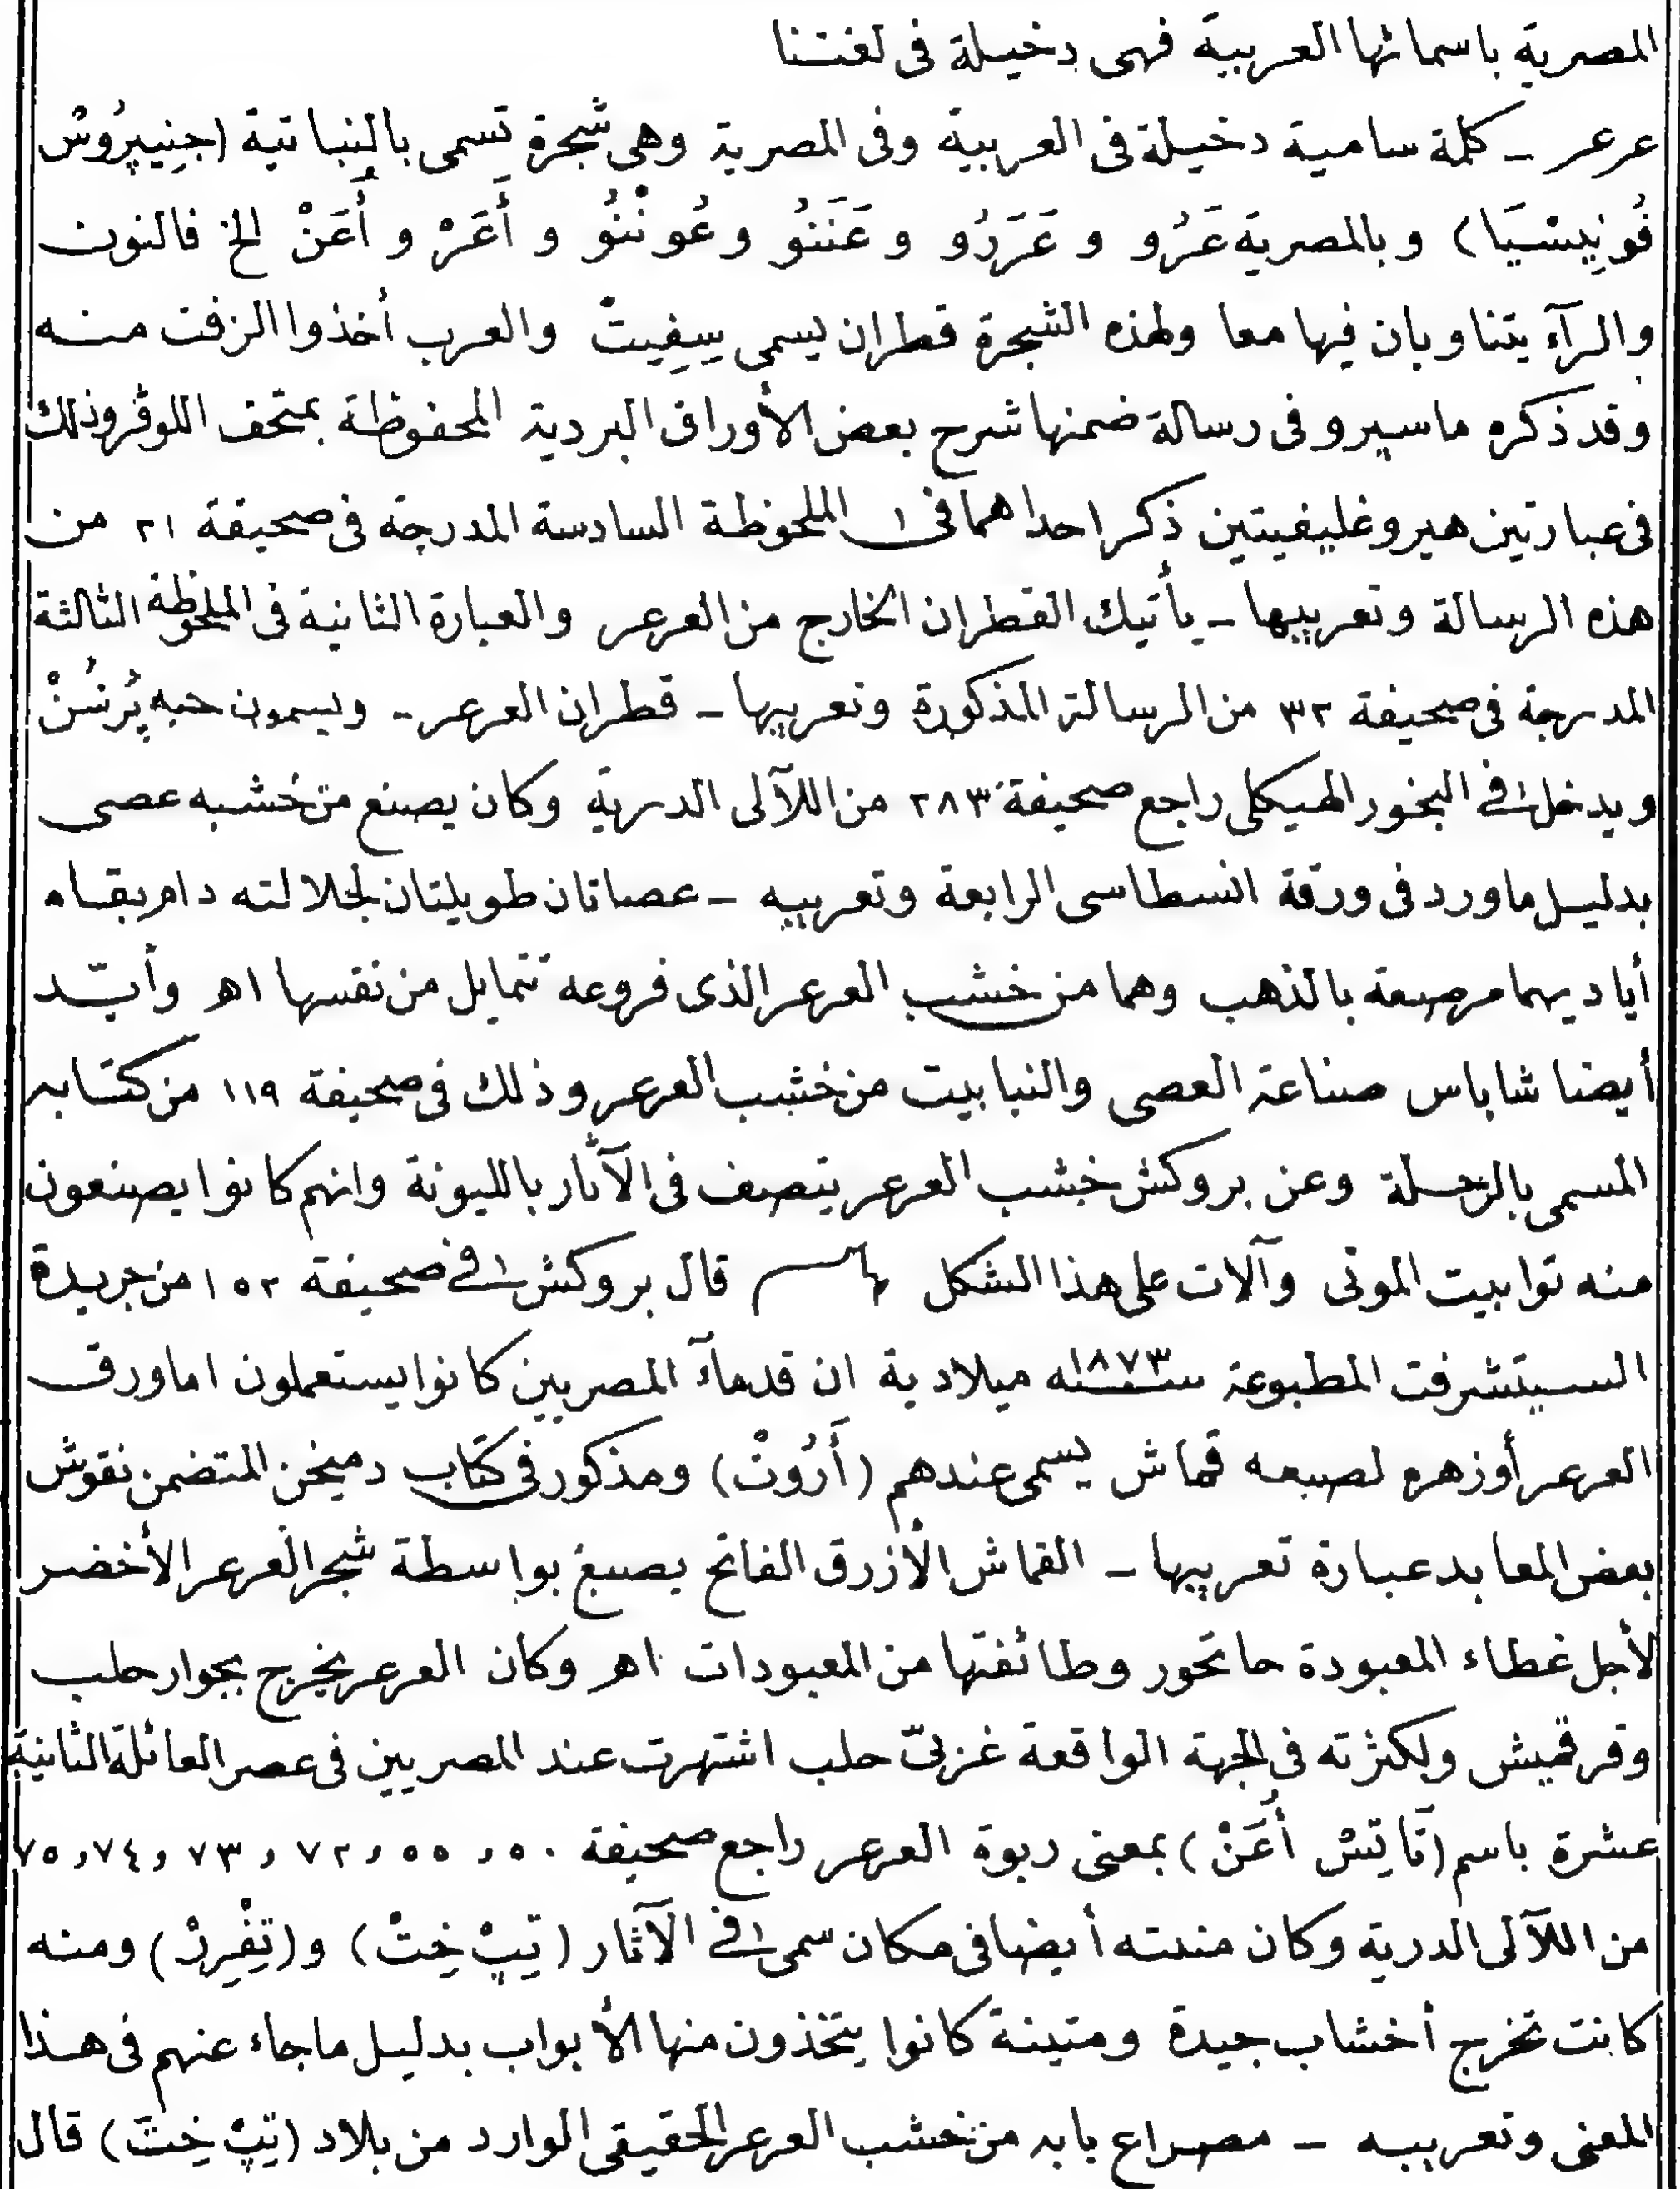 المصرية باسمائها العربية فهى دخيلة فى لغتنا
عرعر ـ كلمة سامية دخيلة فى العربية وفى المصرية وهى شجرة تسمى بالنباتية (جِنِيپِرُوسْ
فُونِيسْيَا) وبالمصرية عَرُو و عَرَرُو و عَنَنُو و عُونْنُو و أَعَرْ و أَعَنْ الخ فالنون
والرآء يتناوبان فيها معا ولهذه الشجرة قطران يسمى سِفِيتْ والعرب أخذوا الزفت منه
وقد ذكره ماسپرو فى رسالة ضمنها شرح بعض الأوراق البردية المحفوظة بمتحف اللوڤر وذلك
فى عبارتين هيروغليفيتين ذكر احداهما فى الملحوظة السادسة المدرجة فى صحيفة ٢١ من
هذه الرسالة وتعريبها ـ يأتيك القطران الخارج من العرعر والعبارة الثانية فى الملحوظة الثالثة
المدرجة فى صحيفة ٣٢ من الرسالة المذكورة وتعريبها ـ قطران العرعر ـ ويسمون حبه پُرْشُنْ
ويدخل فى البخور الهيكلى راجع صحيفة ٢٨٣ من اللآلى الدرية وكان يصنع من خشبه عصى
بدليل ما ورد فى ورقة انسطاسى الرابعة وتعريبه ـ عصاتان طويلتان لجلالته دام بقاه
أياديهما مرصعة بالذهب وهما من خشب العرعر الذى فروعه تتمايل من نفسها اهـ وأيّد
أيضا شاباس صناعة العصى والنبابيت من خشب العرعر وذلك فى صحيفة ١١٩ من كتابه
المسمى بالرحلة وعن بروكش خشب العرعر يتصف فى الآثار بالليونة وانهم كانوا يصنعون
منه توابيت الموتى وآلات على هذا الشكل قال بروكش فى صحيفة ١٥٢ من جريدة
السيتشرفت المطبوعة سنة ١٨٧٣ ميلادية ان قدمآء المصريين كانوا يستعملون اما ورق
العرعر أو زهره لصبغه قماش يسمى عندهم (أَرُوتْ) ومذكور فى كتاب دميخن المتضمن نقوش
بعض المعابد عبارة تعريبها ـ القماش الأزرق الفاتح يصبغ بواسطة شجر العرعر الأخضر
لأجل غطاء المعبودة حاتحور وطائفتها من المعبودات اهـ وكان العرعر يخرج بجوار حلب
وقرقميش ولكثرته فى الجهة الواقعة غربىّ حلب اشتهرت عند المصريين فى عصر العائلة الثانية
عشرة باسم (تَاتِسْ أُعَنْ) بمعنى ربوة العرعر راجع صحيفة ٥٠ و ٥٥ و ٧٢ و ٧٣ و ٧٤ و ٧٥
من اللآلى الدرية وكان منبته أيضا فى مكان سمى فى الآثار (تِپْ خِتْ) و(تِفْرِرْ) ومنه
كانت تخرج أخشاب جيدة ومتينة كانوا يتخذون منها الأبواب بدليل ما جاء عنهم فى هذا
المعنى وتعريبه ـ مصراع بابه من خشب العرعر الحقيقى الوارد من بلاد (تِپْ خِتْ) قال